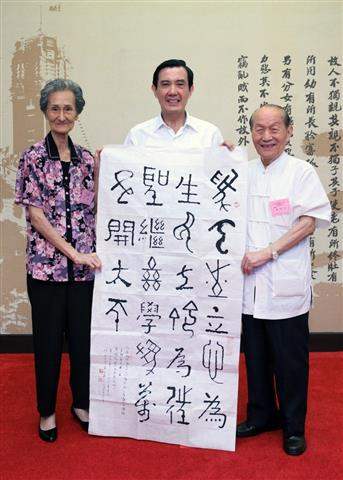 故人不獨親其親不獨子其子使老有所終壯有
所用幼有所長矜寡
男有分女有
力惡其不出
竊亂賊而不作故外
為天地立心為
生民立命為往
聖繼絕學為萬
世開太平